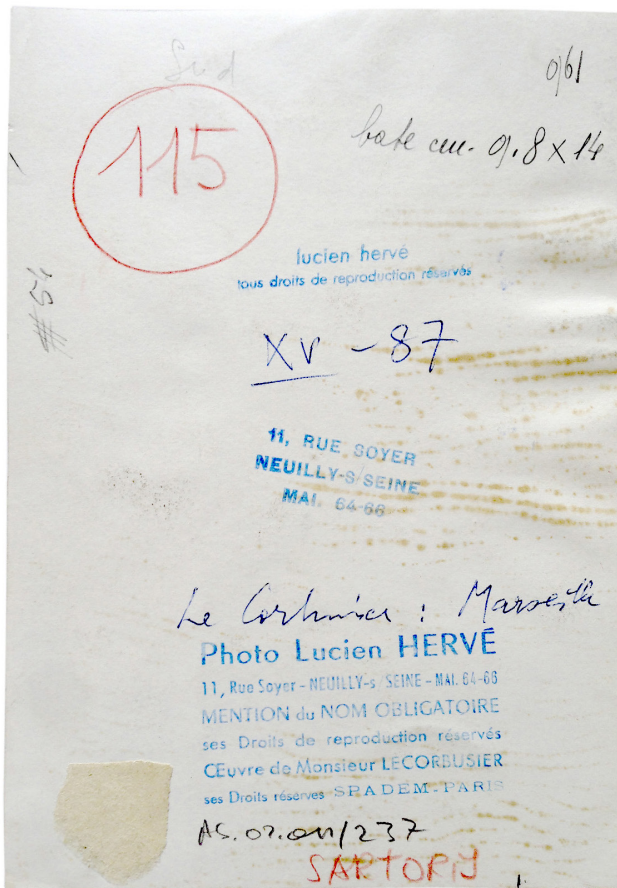 Sud
0)61
115
base cm. 9.8 X 14
lucien hervé
tous droits de reproduction réservés
# 51
XV - 87
11, RUE SOYER
NEUILLY-S/SEINE
MAI. 64-66
Le Corbusier : Marseille
Photo Lucien HERVÉ
11, Rue Soyer - NEUILLY-s/SEINE - MAI. 64-66
MENTION du NOM OBLIGATOIRE
ses Droits de reproduction réservés
Œuvre de Monsieur LECORBUSIER
ses Droits réservés SPADEM-PARIS
SARTORIS